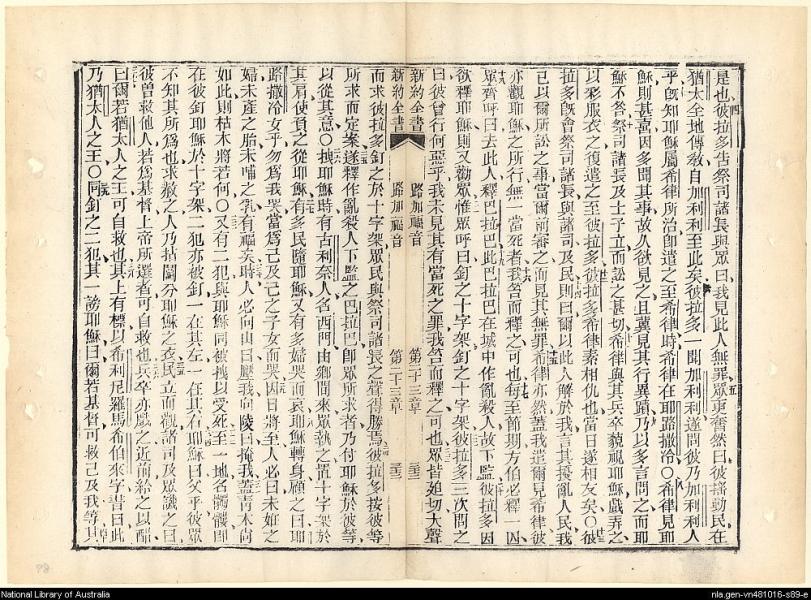 是也彼拉多告祭司諸長與眾曰我見此人無罪眾更奮然曰彼搖動民在
猶太全地傳敎自加利利至此矣彼拉多一聞加利利遂問彼乃加利利人
乎旣知耶穌屬希律所治卽遣之至希律時希律在耶路撒冷〇希律見耶
穌則甚喜因多聞其事故久欲見之且冀見其行異蹟乃以多言問之而耶
穌不答祭司諸長及士子立而訟之甚切希律與其兵卒藐視耶穌戲弄之
以彩服衣之復遣之至彼拉多彼拉多希律素相仇也當日遂相友矣〇彼
拉多旣會祭司諸長與諸司及民則曰爾以此人解於我言其擾亂人民我
已以爾所訟之事當爾前審之而見其無罪希律亦然蓋我遣爾見希律彼
亦觀耶穌之所行無一當死者我笞而釋之可也每至節期方伯必釋一囚
眾齊呼曰去此人釋巴拉巴此巴拉巴在城中作亂殺人故下監彼拉多因
欲釋耶穌則又勸眾惟眾呼曰釘之十字架釘之十字架彼拉多三次問之
曰彼曾行何惡乎我未見其有當死之罪我笞而釋之可也眾皆廹切大聲
新約全書 路加福音 第二十三章 三
新約全書 路加福音 第二十三章 三
而求彼拉多釘之於十字架眾民與祭司諸長之聲得勝焉彼拉多按彼等
所求而定案遂釋作亂殺人下監之巴拉巴卽眾所求者乃付耶穌於彼等
以從其意〇拽耶穌時有古利奈人名西門由鄉間來眾執之置十字架於
其肩使負之從耶穌有多民隨耶穌又有多婦哭而哀耶穌轉身顧之曰耶
路撒冷女乎勿爲我哭當爲己及己之子女而哭因日將至人必曰未姙之
婦未產之胎未哺之乳有福矣時人必向山曰壓我向陵曰掩我蓋靑木尚
如此則枯木將若何〇又有二犯與耶穌同被拽以受死至一地名髑髏卽
在彼釘耶穌於十字架二犯亦被釘一在其左一在其右耶穌曰父乎彼眾
不知其所爲也求赦之人乃拈鬮分耶穌之衣民立而觀諸司及眾譏之曰
彼曾救他人若爲基督上帝所選者可自救也兵卒亦戲之近前給之以醋
曰爾若猶太人之王可自救也其上有標以希利尼羅馬希伯來字書曰此
乃猶太人之王〇同釘之二犯其一謗耶穌曰爾若基督可救己及我等其
National Library of Australia
nla.gen-vn481016-s89-e